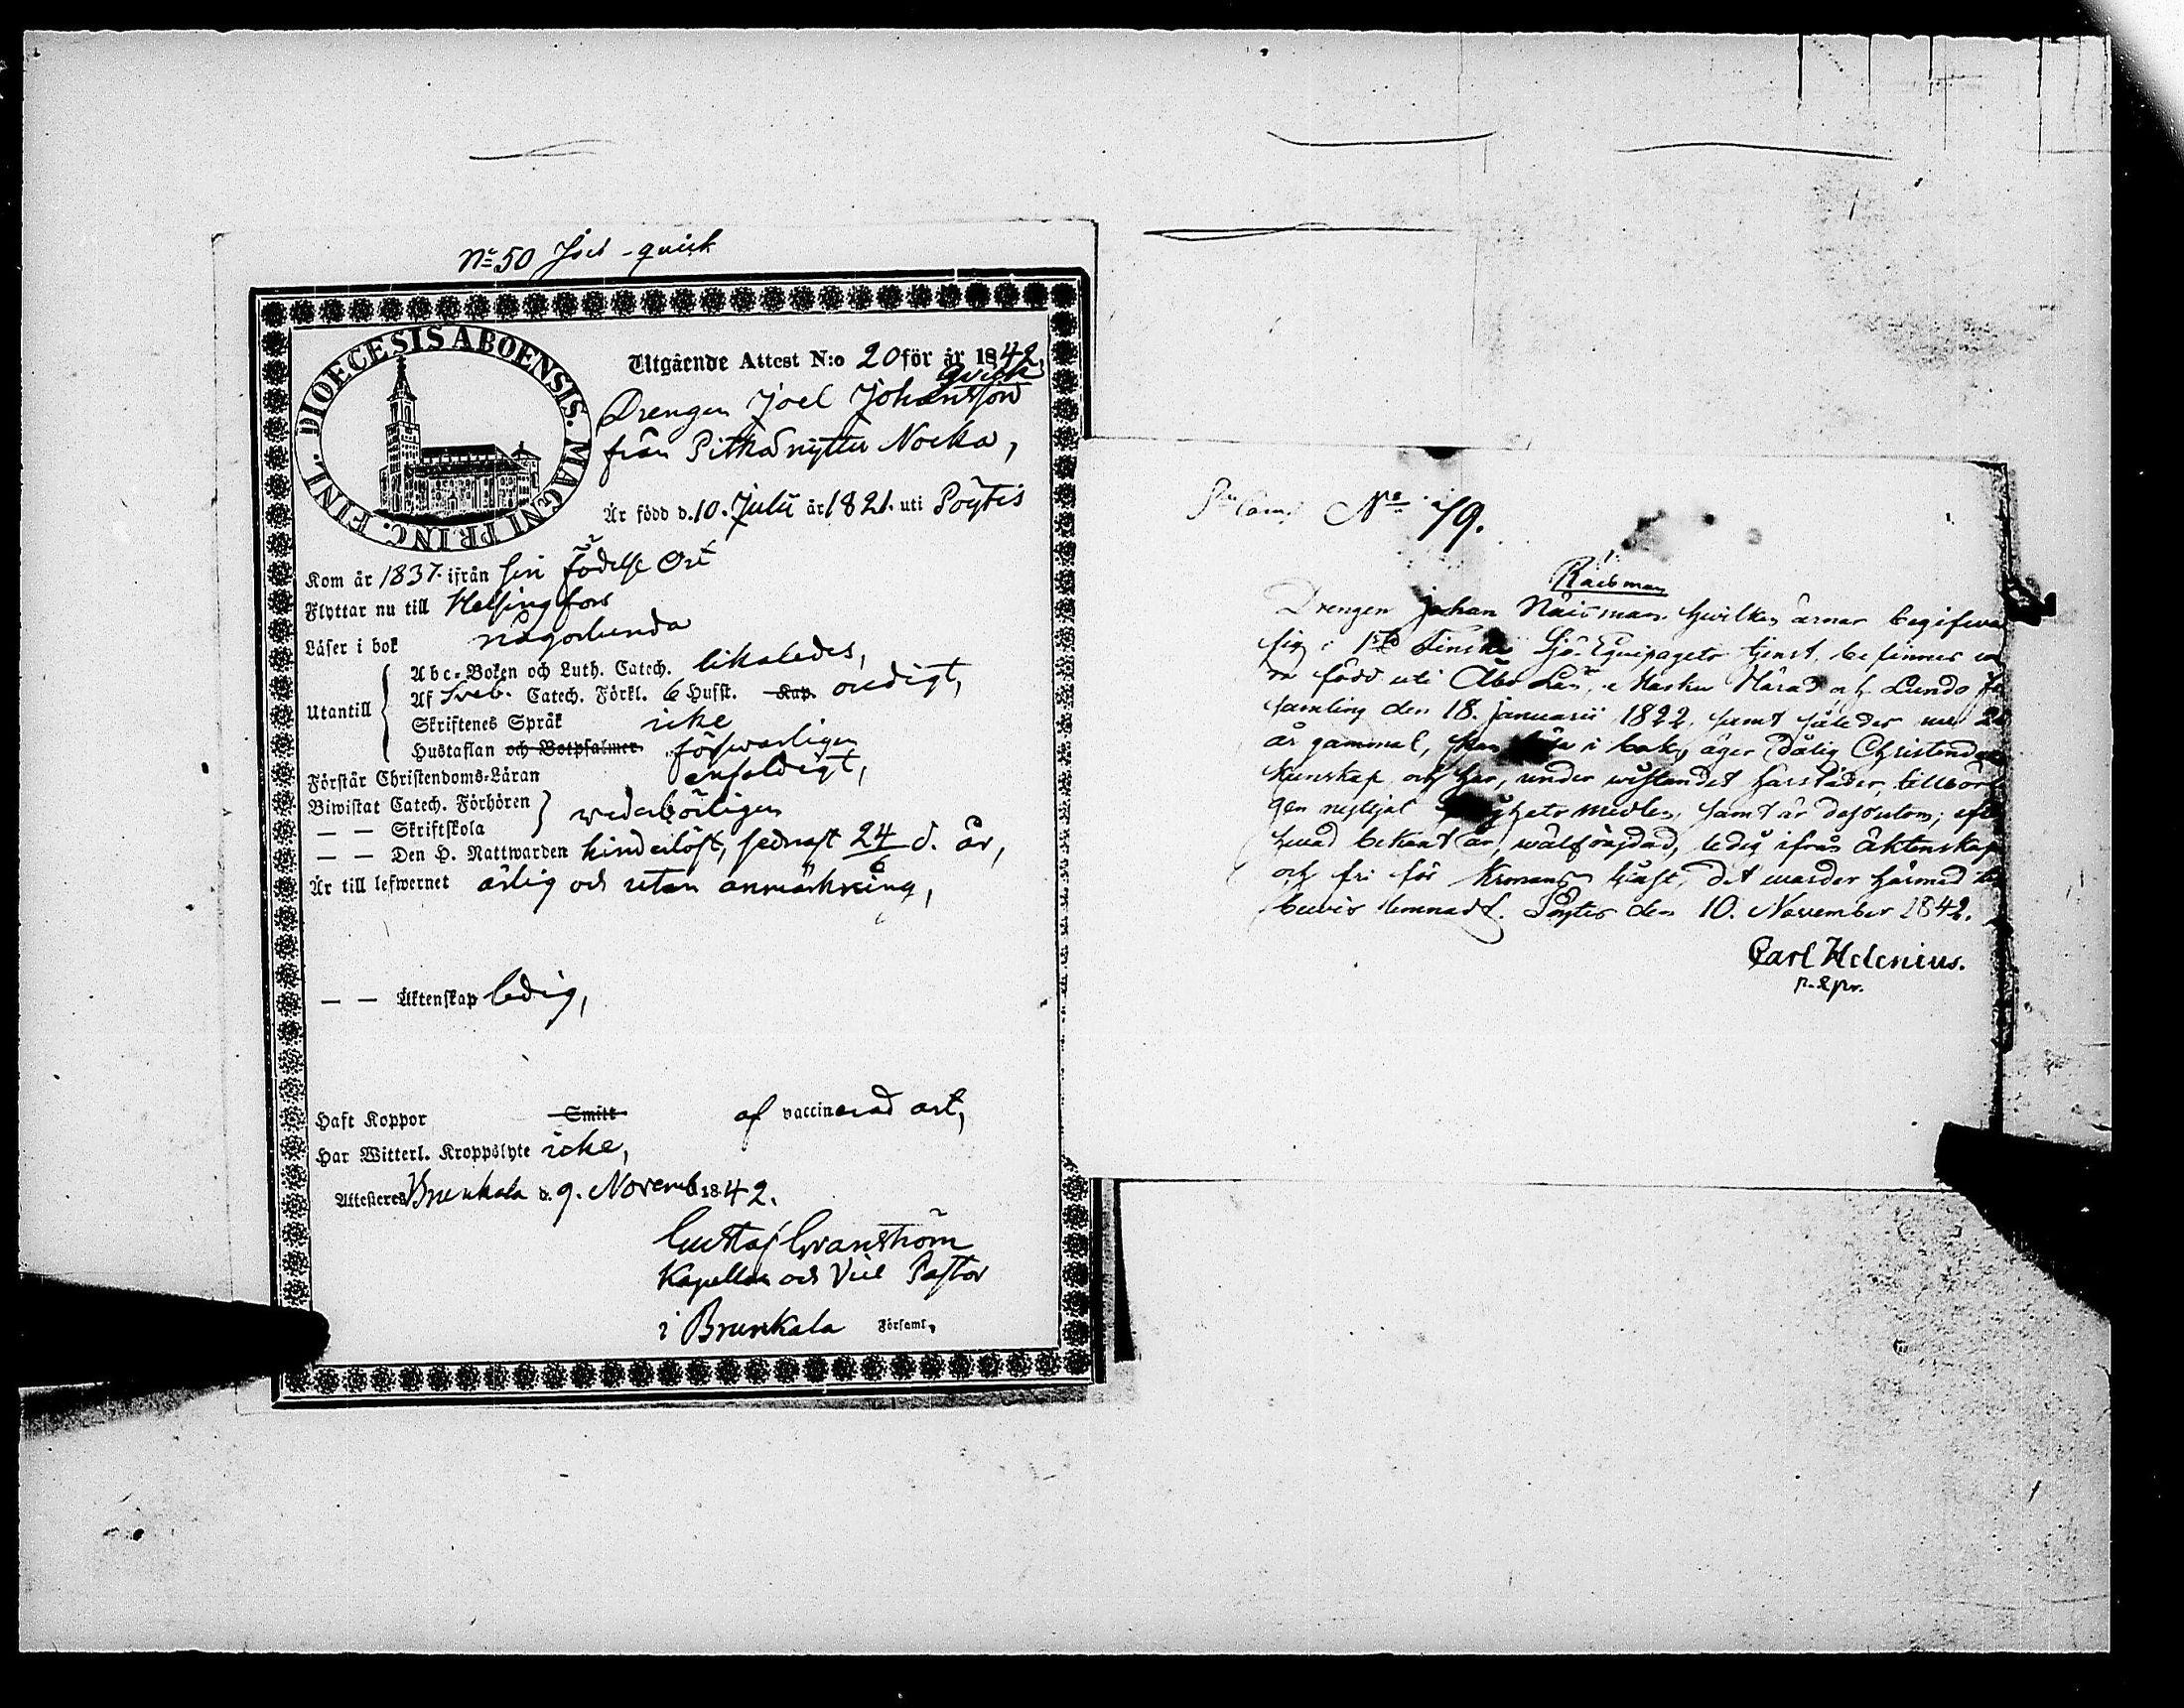 No 50 Joel - quick
DIOECESIS ABOENSIS. MAGNI PRINC. FINL.
Utgående Attest N:o 20 för år 1842.
qvick
Drengen Joel Johansson
från Pitkäsnyttu Nocka,
Är född d. 10. Julii år 1821. uti Pöytis
Kom år 1837. ifrån sin födelse Ort
Flyttar nu till Helsingfors
Läser i bok någorlunda
Utantill
Abc-Boken och Luth. Catech. likaledes,
Af Sveb. Catech. Förkl. 6 Hufst. Kap. oredigt,
Skriftenes Språk icke
Hustaflan och Botpsalmer försvarligen
Förstår Christendoms-Läran enfaldigt,
Biwistat Catech. Förhören
— — Skriftskola
wederbörligen
— — Den H. Nattwarden hinderlöst, sednast 24/6 d. år,
Är till lefwernet ärlig och utan anmärkning,
— — Äktenskap ledig,
Haft Koppor Smitt af vaccinerad art,
Har Witterl. Kroppslyte icke,
Attesteres Brunkala d. 9. Novemb 1842.
Gustaf Granström
Kapellan och Vice Pastor
i Brunkala Församl,
No 79.
Raisman
Drengen Johan Raisman hwilken ärnar begifwa
sig i 1sta Finska Sjö-Equipagets tjenst, befinnes va
ra född uti Åbo Län, Masku Härad och Lundo för
samling den 18. Januarii 1822, samt således nu 20
år gammal, kan läsa i bok, äger dålig Christendoms
kunskap och har, under wistandet härstädes, tillbörli
gen nyttjat medlen, samt är dessutom, efter
hwad bekant är, wälfrägdad, ledig ifrån äktenskap
och fri för Kronans tjenst, det warder härmed till
bewis lemnadt. Pöytis den 10. November 1842.
Carl Helenius.